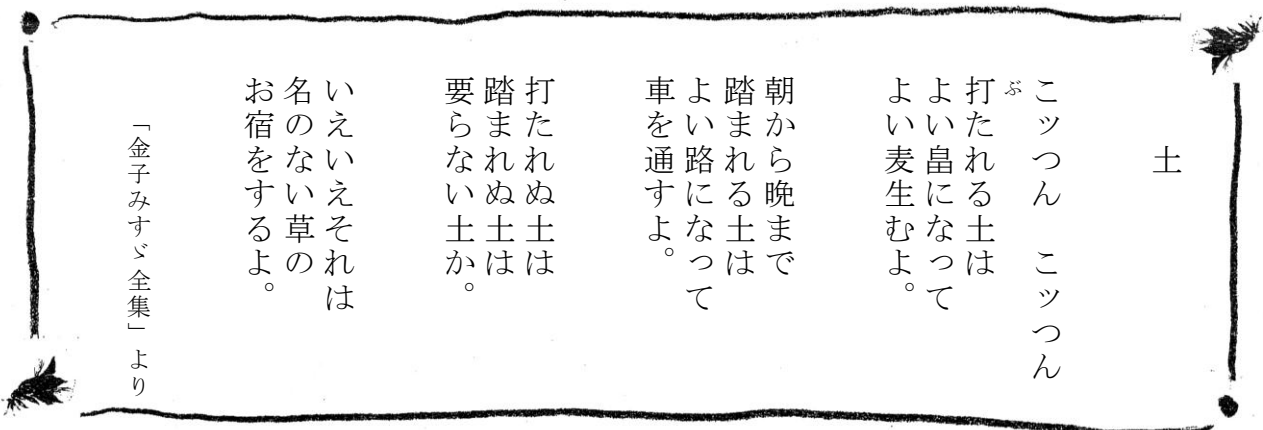 土
こッつん　こッつん
打たれる土は
ぶ
よい畠になって
よい麦生むよ。
朝から晩まで
踏まれる土は
よい路になって
車を通すよ。
打たれぬ土は
踏まれぬ土は
要らない土か。
いえいえそれは
名のない草の
お宿をするよ。
「金子みすゞ全集」より